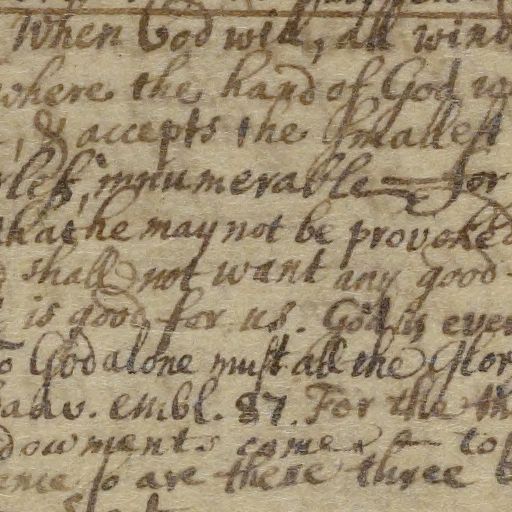 When God will, all wind
where the hand of God
, & accepts the smallest
less, innumerable for
that he may not be provoked
shall not want any good
is good for us. God is ever
To God alone must all the Glor
adv. embl. 87. For the th
dowments came to
ence so are these three